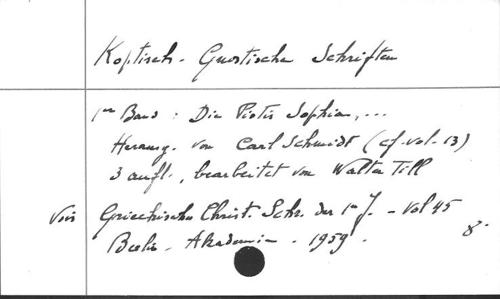 Koptisch-Gnostische Schriften
1er Band : Die Pistis Sophia, ...
Herausg. von Carl Schmidt (cf. vol. 13)
3 aufl., bearbeitet von Walter Till
Voir Griechischen Christ. Schr. der 1en J. - Vol 45
Berlin - Akademie - 1959. 8°